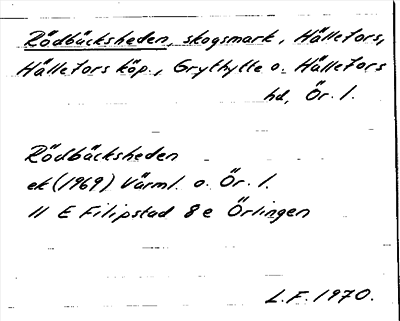 Rödbäcksheden, skogsmark, Hällefors,
Hällefors köp., Grythytte o. Hällefors
hd, Ör. l.
Rödbäcksheden
ek (1969) Värml. o. Ör. l.
11 E Filipstad 8e Örlingen
L.F. 1970.